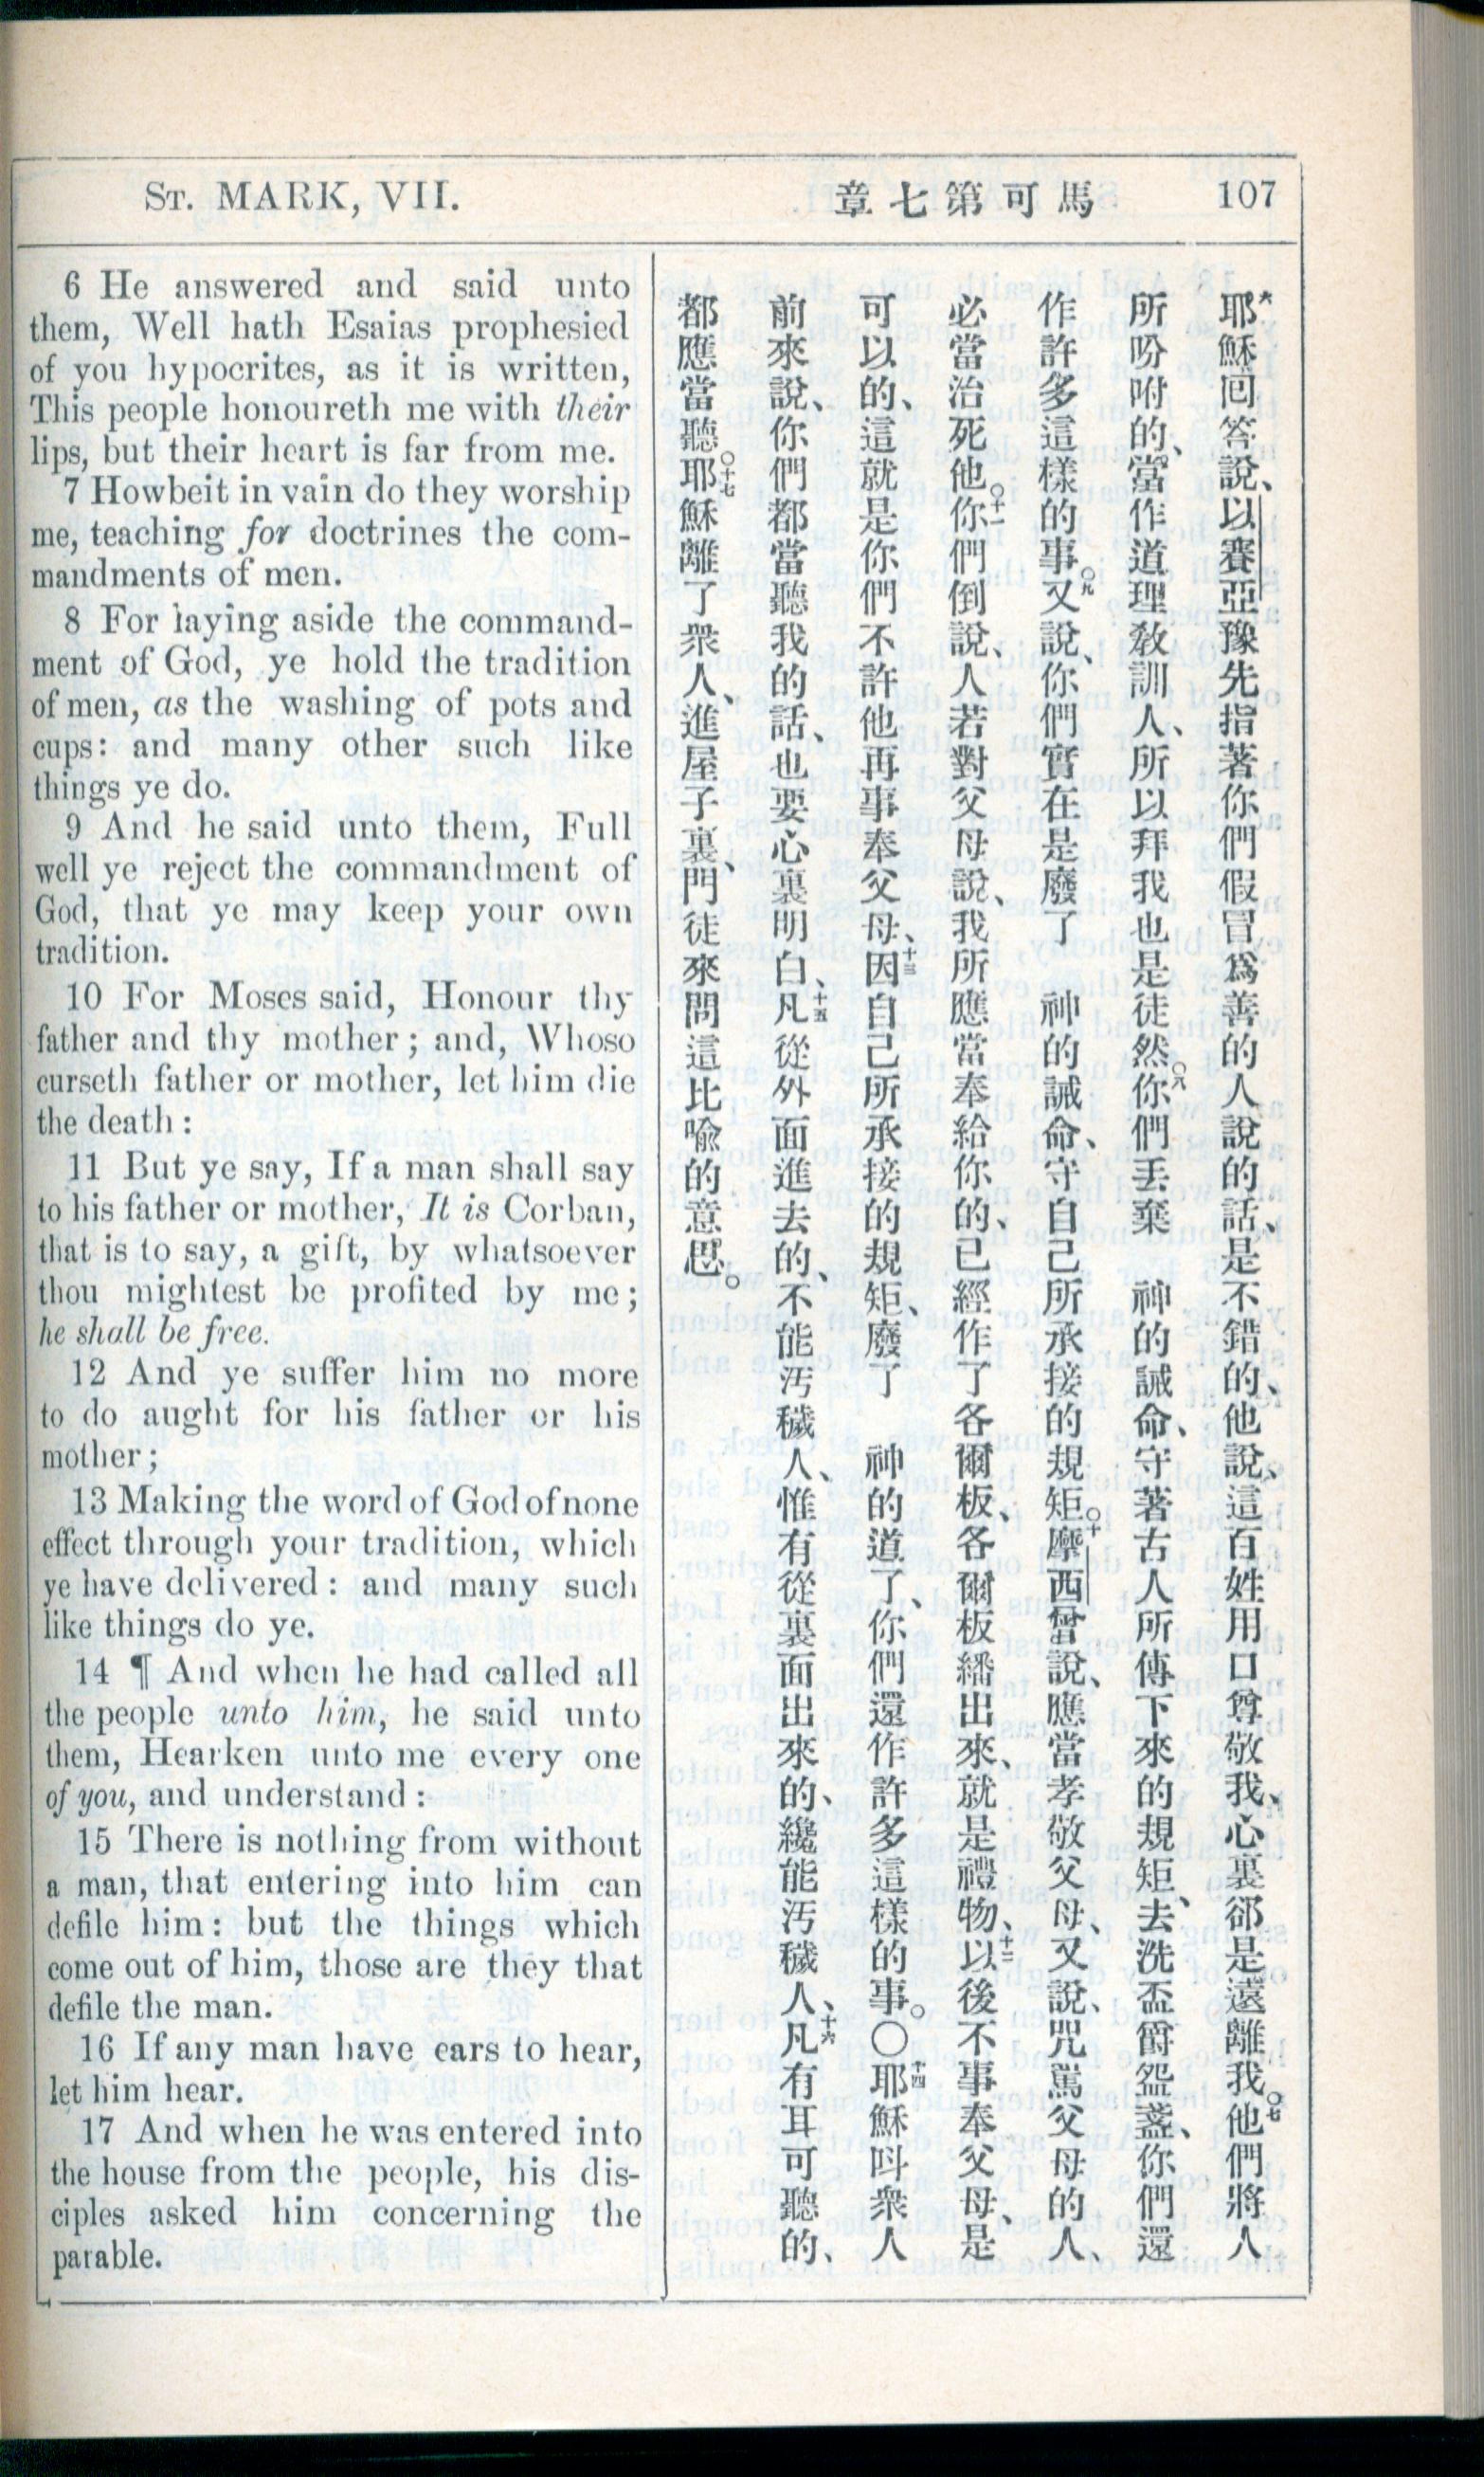 St. MARK, VII.
章七第可馬
107
6 He answered and said unto
them, Well hath Esaias prophesied
of you hypocrites, as it is written,
This people honoureth me with their
lips, but their heart is far from me.
7 Howbeit in vain do they worship
me, teaching for doctrines the com-
mandments of men.
8 For laying aside the command-
ment of God, ye hold the tradition
of men, as the washing of pots and
cups: and many other such like
things ye do.
9 And he said unto them, Full
well ye reject the commandment of
God, that ye may keep your own
tradition.
10 For Moses said, Honour thy
father and thy mother; and, Whoso
curseth father or mother, let him die
the death:
11 But ye say, If a man shall say
to his father or mother, It is Corban,
that is to say, a gift, by whatsoever
thou mightest be profited by me;
he shall be free.
12 And ye suffer him no more
to do aught for his father or his
mother;
13 Making the word of God of none
effect through your tradition, which
ye have delivered: and many such
like things do ye.
14 ¶ And when he had called all
the people unto him, he said unto
them, Hearken unto me every one
of you, and understand:
15 There is nothing from without
a man, that entering into him can
defile him: but the things which
come out of him, those are they that
defile the man.
16 If any man have ears to hear,
let him hear.
17 And when he was entered into
the house from the people, his dis-
ciples asked him concerning the
parable.
*耶穌囘答說、以賽亞豫先指著你們假冒爲善的人說的話、是不錯的、他說、這百姓用口尊敬我、心裏郤是遠離我。○七他們將人
所吩咐的、當作道理敎訓人、所以拜我也是徒然○八你們丟棄 神的誡命、守著古人所傳下來的規矩、去洗盃爵盌盞、你們還
作許多這樣的事○九又說、你們實在是廢了 神的誡命、守自己所承接的規矩○十摩西曾說、應當孝敬父母、又說、咒罵父母的人、
必當治死他○十一你們倒說、人若對父母說、我所應當奉給你的、已經作了各爾板、各爾板繙出來、就是禮物、十二以後不事奉父母、是
可以的、這就是你們不許他再事奉父母、十三因自己所承接的規矩、廢了 神的道了、你們還作許多這樣的事。○十四耶穌呌衆人
前來說、你們都當聽我的話、也要心裏明白、十五凡從外面進去的、不能汚穢人、惟有從裏面出來的、纔能汚穢人、十六凡有耳可聽的、
都應當聽○十七耶穌離了衆人、進屋子裏、門徒來問這比喩的意思。